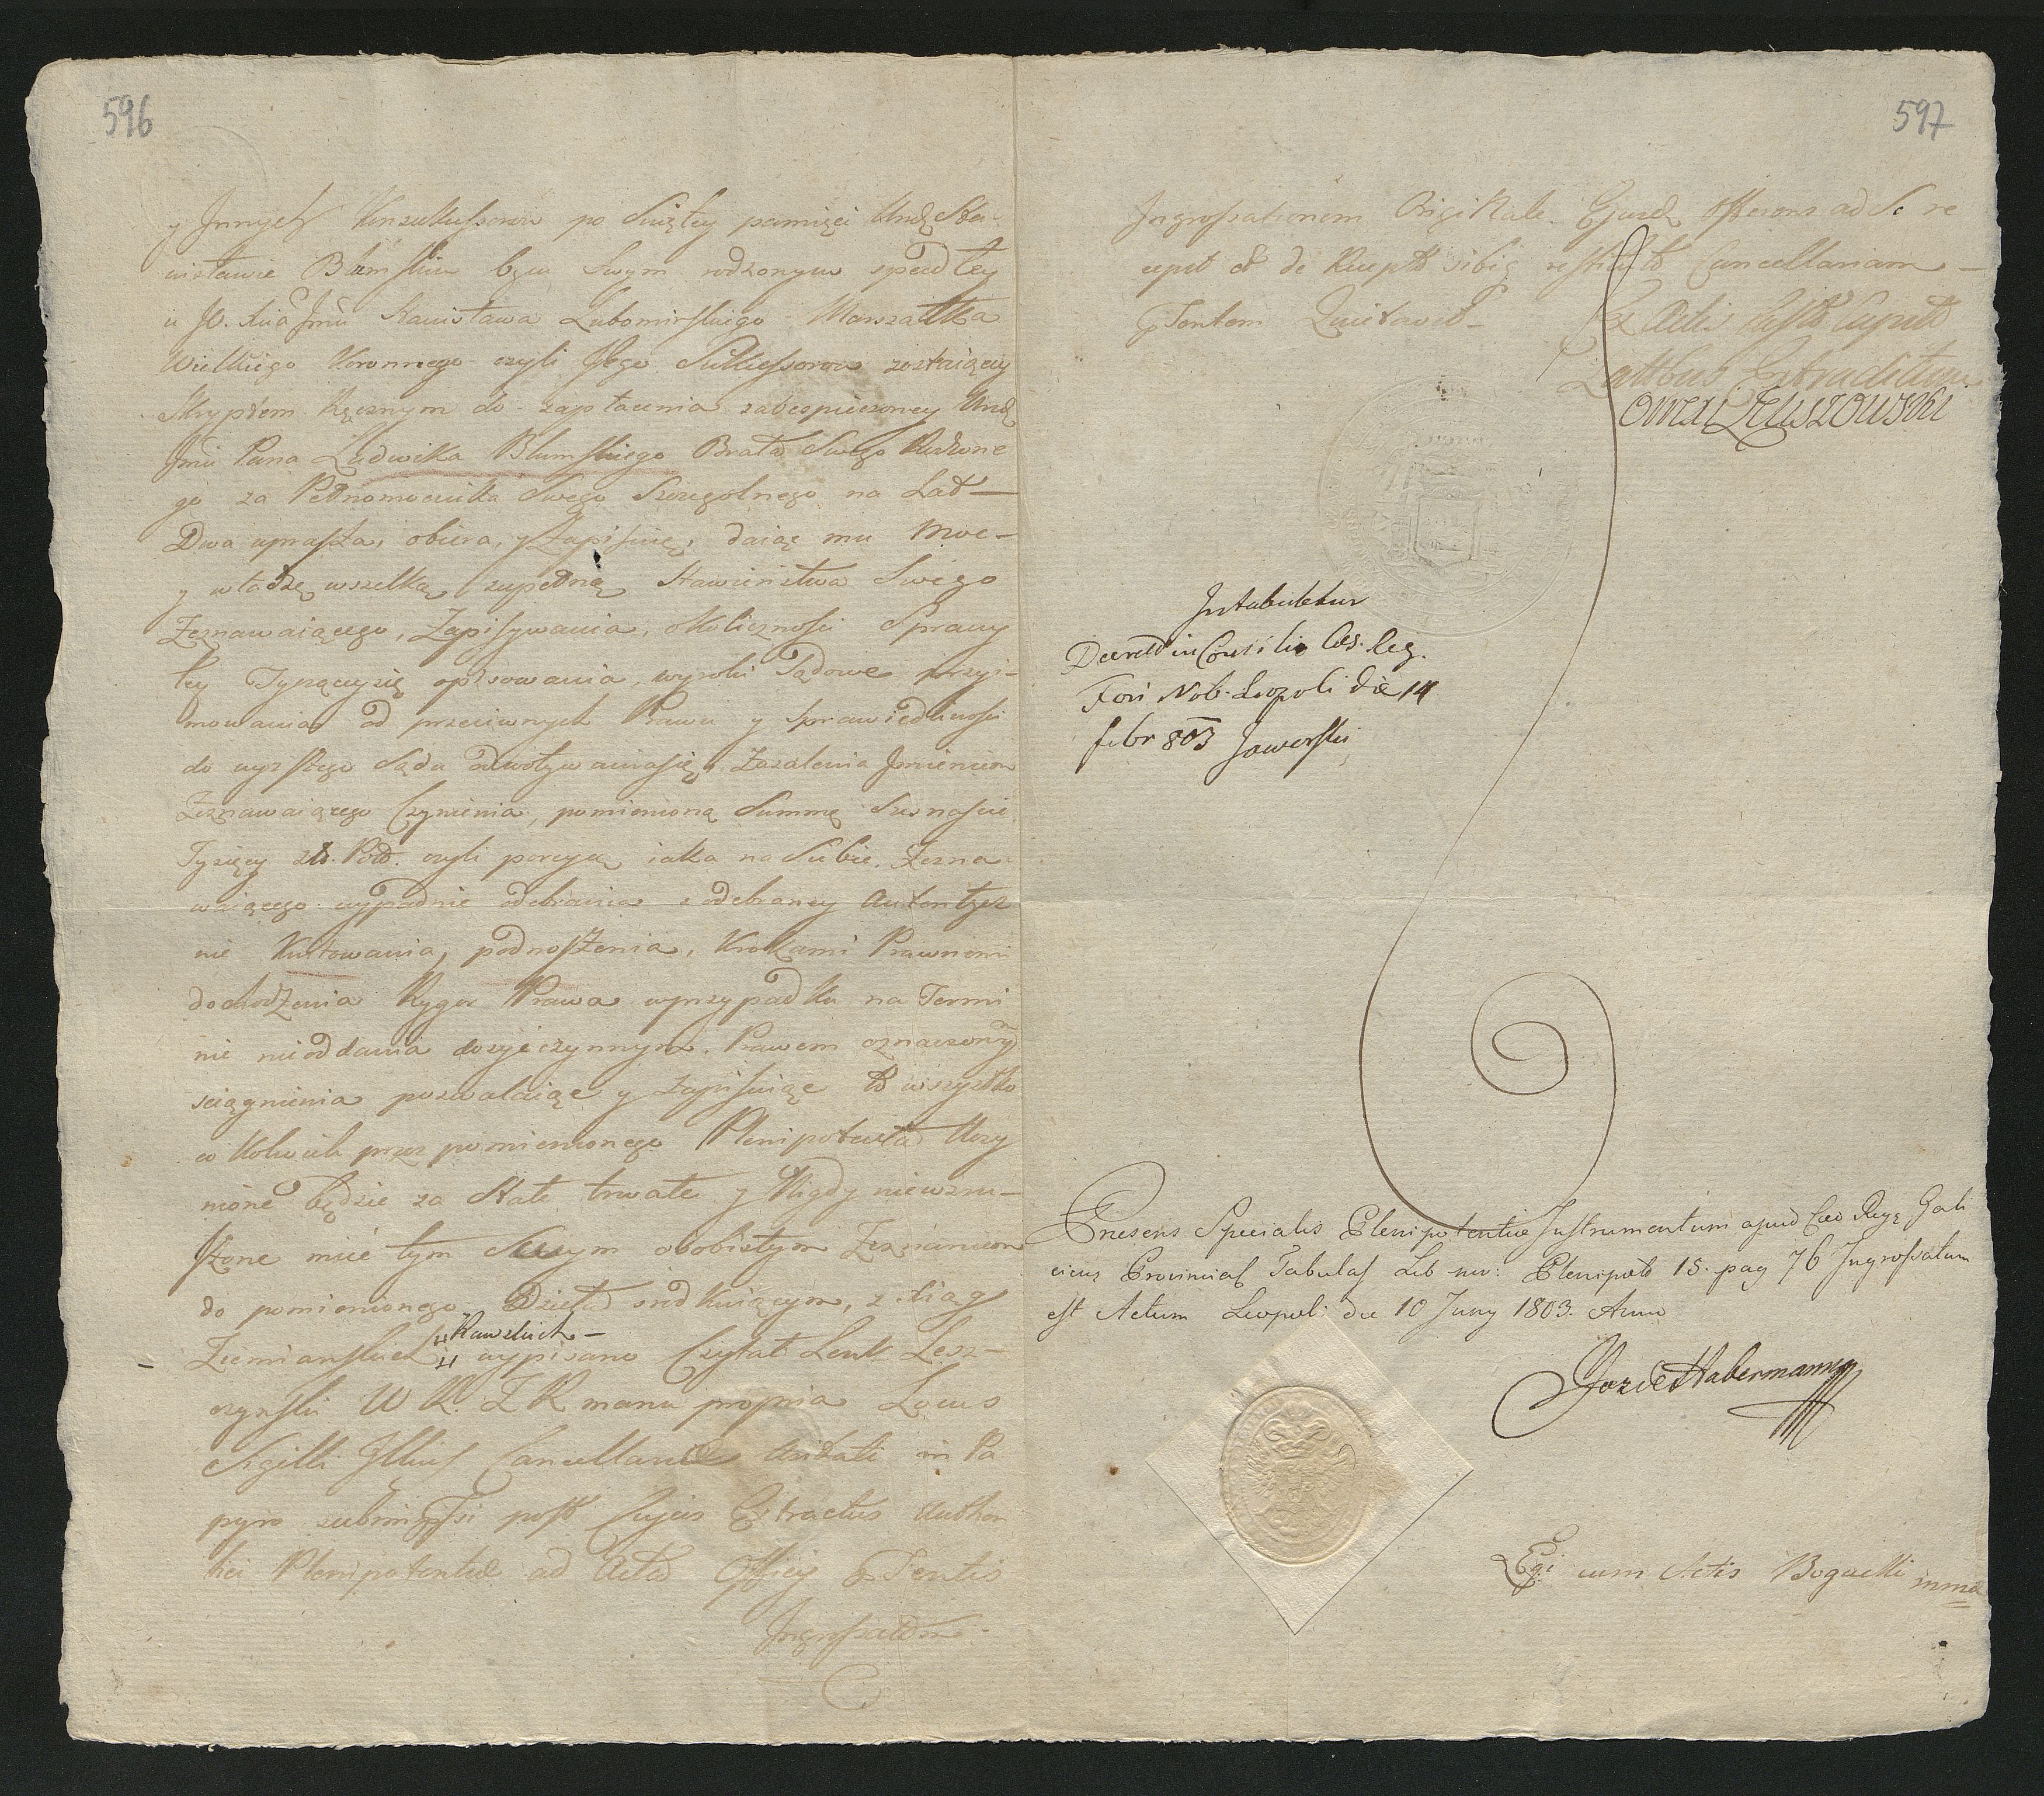 596
y Innych Konsukcessorow po Swiętey pamięci Urodz Sta-
nisławie Blumskim bęcu Swym rodzonym spadłey
u JO. Xcia Jmci Stanisława Lubomirskiego Marszałka
Wielkiego Koronnego czyli Jego Sukcessorow zostaiącey
Skryptem Ręcznym do zapłacenia zabespieczoney Urodz
Jmci Pana Ludwika Blumskiego Brata Swego Rodzone
go za Pełnomocnika Swego Szczegolnego na Lat
Dwa uprasza, obiera, y Zapisuię, daiąc mu Moc
y władzę wszelką, zupełną Stawieństwa Swego
Zeznawaiącego, Zapisywania, okoliczności Sprawy
tey Tyczącysię opisowania, wyroki Sądowe przyi-
mowania od przeciwnych Prawu y Sprawiedliwości
do wyzszego Sądu odwoływaniasię, Zazalenia Imieniem
Zeznawaiącego Czynienia, pomienioną Summę Szesnaście
Tysięcy zło. Pol. czyli porcyę iaka na Siebie Zezna-
waiącego wypadnie odebrania z odebraney autentycz
nie Kwitowania, podnoszenia, Krokami Prawnemi
dochodzenia Rygor Prawa wprzypadku na Termi
nie nieoddania dosyćczynnym Prawem oznaczony
sciągnienia pozwalaiąc y zapisuiąc to wszystko
co kolwiek przez pomienionego Plenipotenta Uczy
nione będzie za Stałe trwałe y Nigdy niewzru-
szone mieć tym Swym osobistym Zeznaniem
do pomienionego Dzieła srodkuiącym, z xiąg
Rawskich
Ziemianskich wypisano Czytał Lenk Lesz-
czynski W R. Z R manu propria Locus
Sigilli Illius Cancellariæ Usitati in Pa
pyro subimpressi post Cujus Extractus Authen
tici Plenipotentiæ ad Acta Officij pntis
Ingrossatom
597
Ingrossationem Originale Ejusdem Offerens ad Se re
cepit et de Recepto sibiq restituto Cancellariam
pntem Quietavit
Ex Actis Castr Capit
Leltbus Extraditum
Intabuletur
Decretd in Consilio Ces. Reg.
Fori Nob. Leopoli die 14
febr 803 Jaworski
Præsens Specialis Plenipotentiæ Instrumentum apud Cæo Reg Gali
cienz Provincial Tabulas Lib nov: Plenipoto 15. pag 76 Ingrossatum
est Actum Leopoli die 10 Juny 1803. Anno
Jozef Habermann
Egi cum Actis Bogucki mma